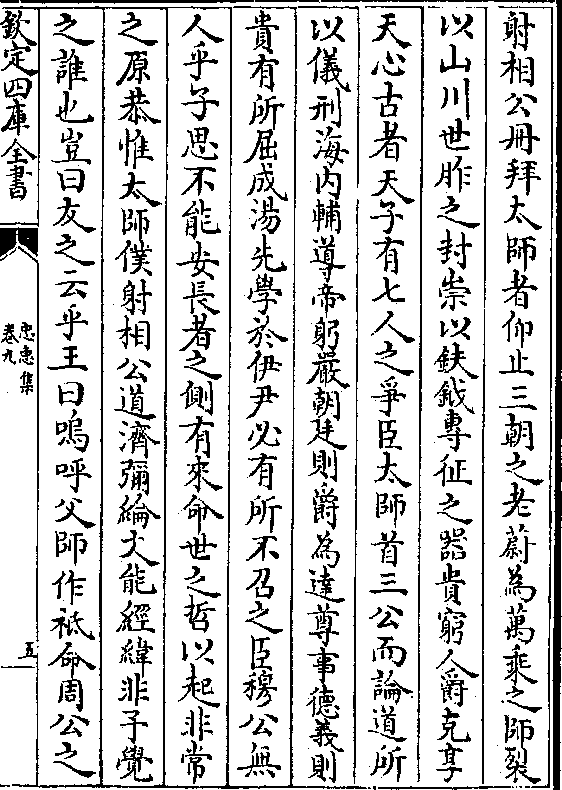 射相公冊拜太師者仰止三朝之老蔚為萬乘之師裂
以山川世胙之封崇以鈇鉞専征之器貴窮人爵克享
天心古者天子有七人之爭臣太師首三公而論道所
以儀刑海內輔導帝躬嚴朝廷則爵為達尊事德義則
貴有所屈成湯先學於伊尹必有所不召之臣穆公無
人乎子思不能安長者之側有來命世之哲以起非常
之原恭惟太師僕射相公道濟彌綸文能經緯非予覺
之誰也豈曰友之云乎王曰嗚呼父師作祗命周公之
欽定四庫全書
忠惠集
卷九
五